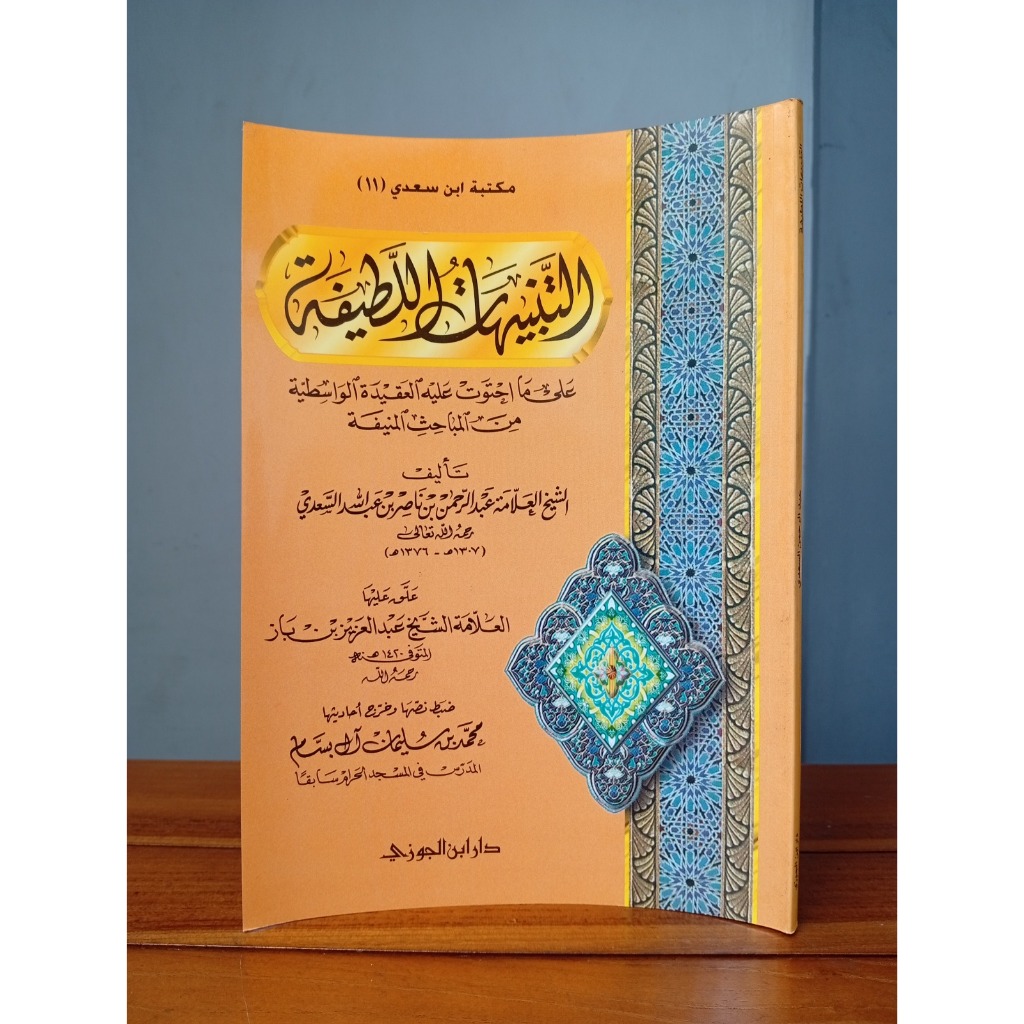 مكتبة ابن سعدي (١١)
التَّنبيهات اللَّطيفة
على ما احتوت عليه العقيدة الواسطية
من المباحث المنيفة
تأليف
الشيخ العلّامة عبد الرّحمن بن ناصر بن عبد الله السّعدي
رحمه الله تعالى
(١٣٠٧هـ - ١٣٧٦هـ)
علّق عليها
العلّامة الشيخ عبد العزيز بن باز
المتوفى ١٤٢٠ هـ
رحمه الله
ضبط نصّها وخرّج أحاديثها
محمّد بن سليمان آل بسّام
المدرّس في المسجد الحرام سابقًا
دار ابن الجوزي
التنبيهات اللطيفة
عبد الرحمن السعدي